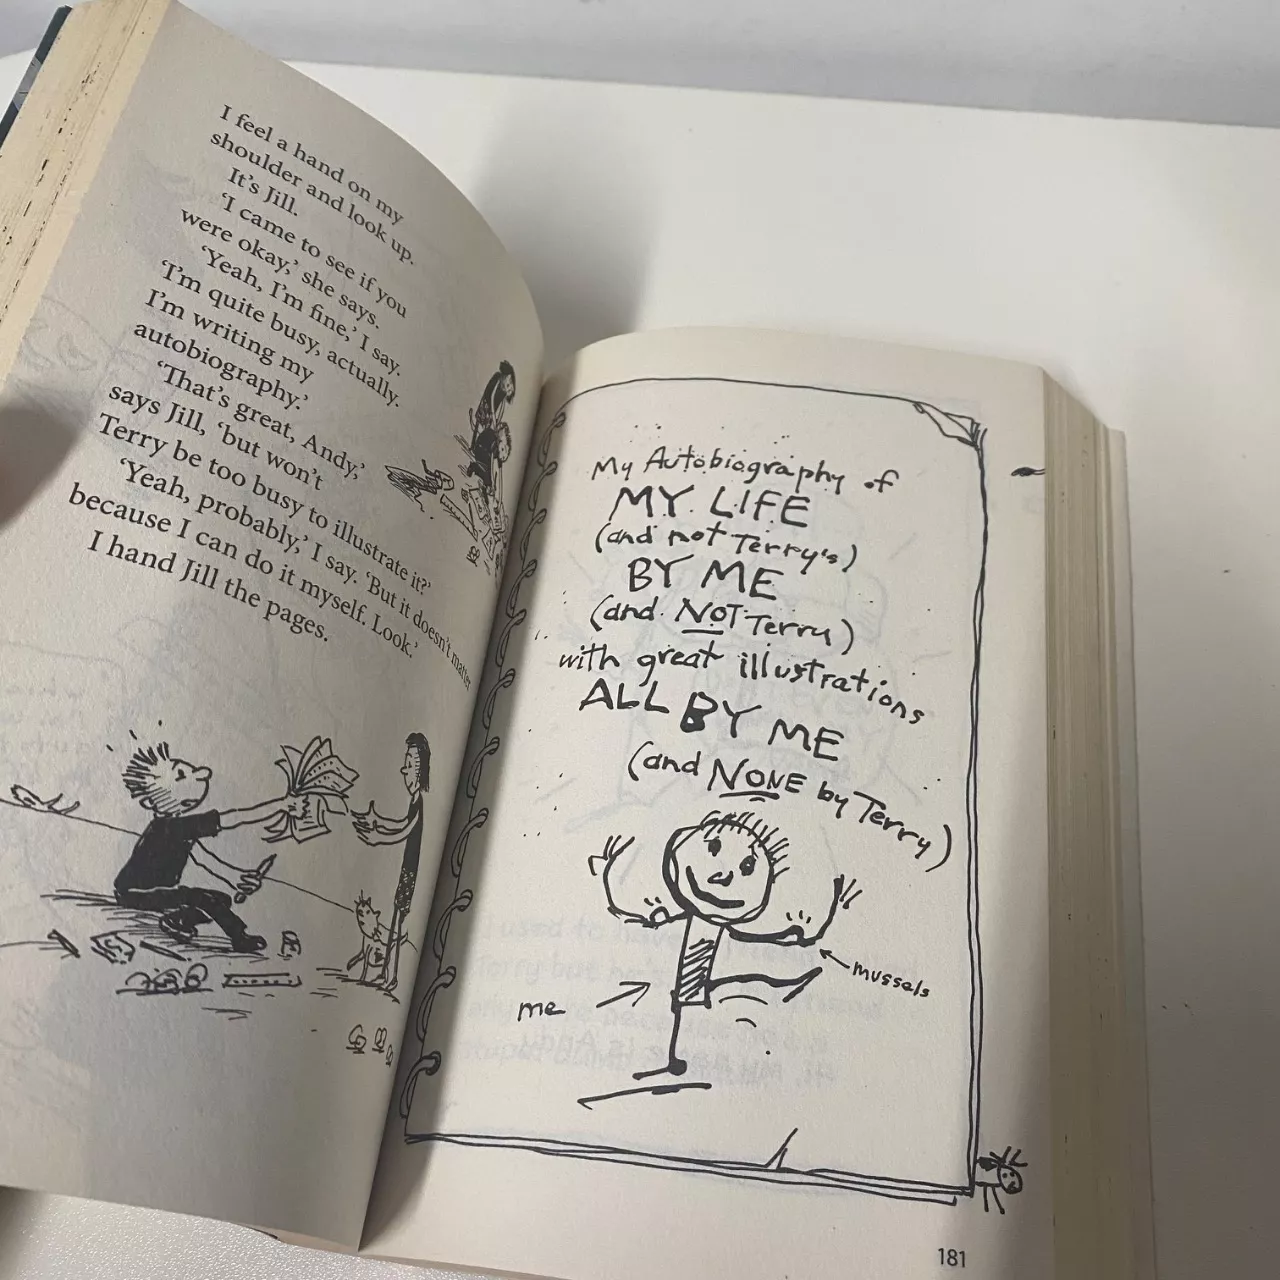 I feel a hand on my
shoulder and look up.
It's Jill.
'I came to see if you
were okay,' she says.
'Yeah, I'm fine,' I say.
'I'm quite busy, actually.
I'm writing my
autobiography.'
'That's great, Andy,'
says Jill, 'but won't
Terry be too busy to illustrate it?'
'Yeah, probably,' I say. 'But it doesn't matter
because I can do it myself. Look.'
I hand Jill the pages.
My Autobiography of
MY LIFE
(and not Terry's)
BY ME
(and NOT Terry)
with great illustrations
ALL BY ME
(and NONE by Terry)
mussels
me
181